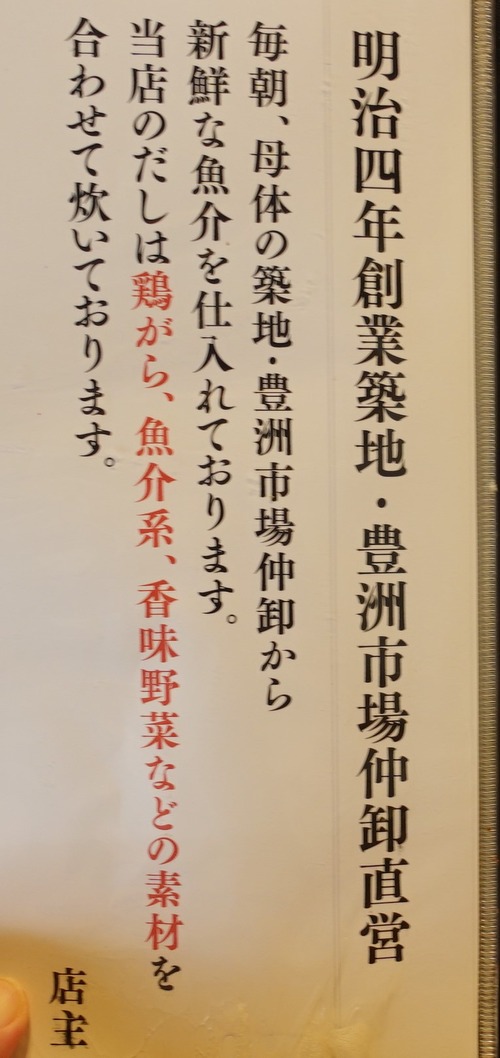 明治四年創業築地・豊洲市場仲卸直営
毎朝、母体の築地・豊洲市場仲卸から
新鮮な魚介を仕入れております。
当店のだしは鶏がら、魚介系、香味野菜などの素材を
合わせて炊いております。
店主